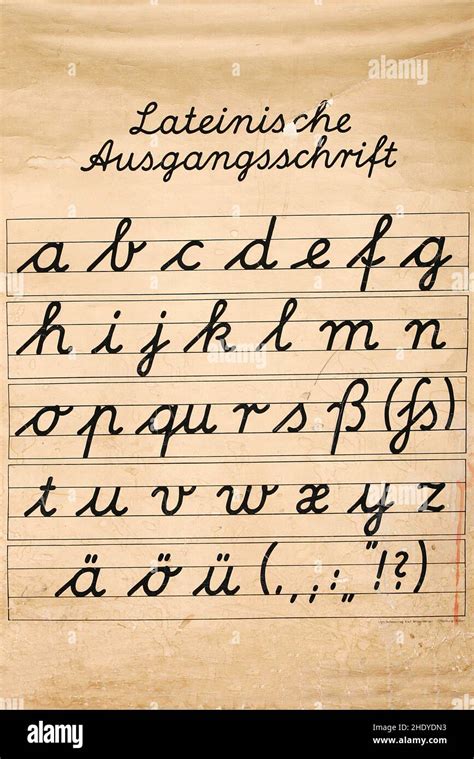 Lateinische
Ausgangsschrift
a b c d e f g
h i j k l m n
o p qu r s ß (ſs)
t u v w x y z
ä ö ü (. , ; : „ " ! ? )
alamy
Image ID: 2HDYDN3
www.alamy.com